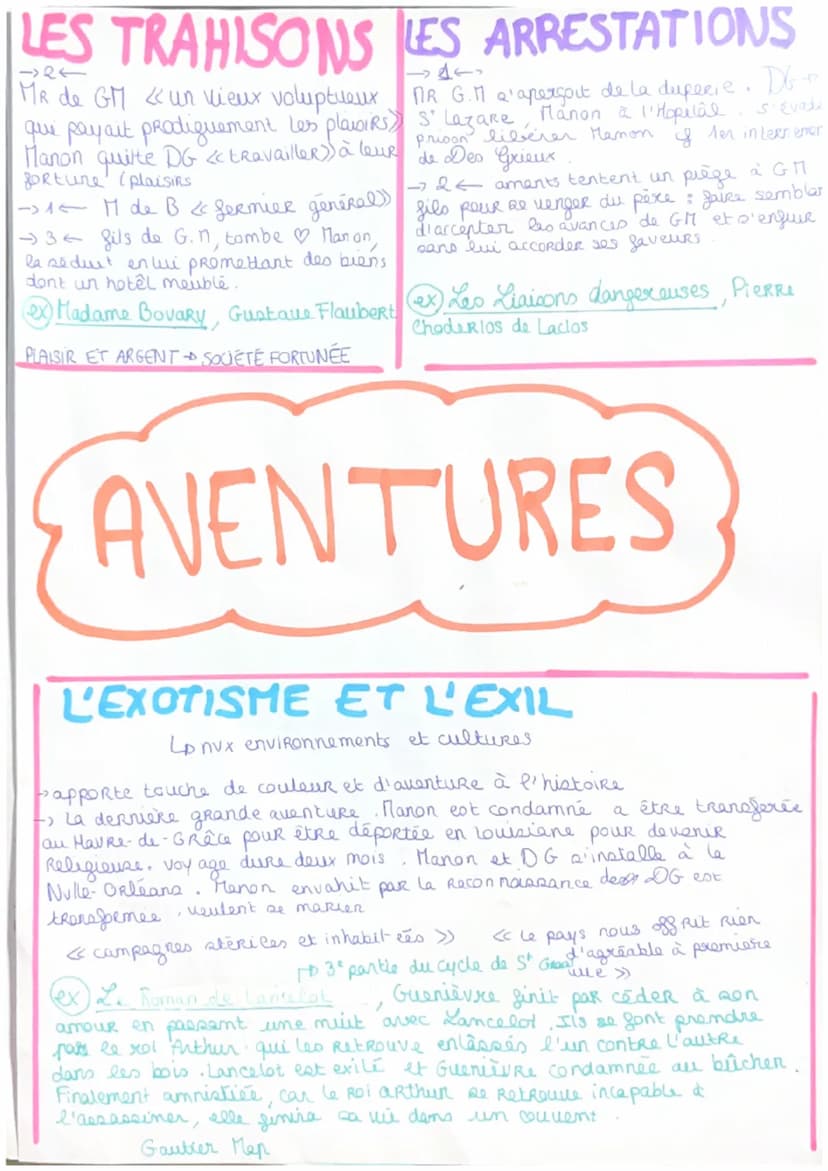 LES TRAHISONS
→2←
MR de GM « un vieux voluptueux
qui payait prodiguement les plaisirs »
Manon quitte DG « travailler » à leur
fortune / plaisirs
→1← M de B « fermier général »
→3← fils de G.M, tombe ♡ Manon,
la séduit en lui promettant des biens
dont un hotêl meublé.
ex Madame Bovary, Gustave Flaubert
PLAISIR ET ARGENT → SOCIÉTÉ FORTUNÉE
LES ARRESTATIONS
→1←
MR G.M s'aperçoit de la duperie. DG→
S' Lazare, Manon à l'Hopitâl. s'évade
prison libérer Manon 1er
de Des Grieux.
→2← amants tentent un piège à GM
fils pour se venger du père : faire semblan
d'accepter les avances de GM et s'enfuir
sans lui accorder ses faveurs.
ex Les Liaisons dangereuses, Pierre
Choderlos de Laclos
AVENTURES
L'EXOTISME ET L'EXIL
↳ nvx environnements et cultures
→ apporte touche de couleur et d'aventure à l'histoire
→ La dernière grande aventure. Manon est condamné a être transferée
au Havre-de-Grâce pour être déportée en Louisiane pour devenir
Religieuse. voyage dure deux mois. Manon et DG s'installe à la
Nvlle-Orléans. Manon envahit par la reconnaissance de DG est
transformée, veulent se marier
« campagnes stériles et inhabitées » « le pays nous offrit rien
d'agréable à premiere
vue »
→ 3e partie du cycle de St Graal
ex Le Roman de Lancelot, Guenièvre finit par céder à son
amour en passant une nuit avec Lancelot. Ils se font prendre
par le roi Arthur qui les retrouve enlassés l'un contre l'autre
dans les bois. Lancelot est exilé et Guenièvre condamnée au bûcher.
Finalement amnistiée, car le Roi arthur se retrouve incapable de
l'assassiner, elle finira sa vie dans un couvent.
Gautier Map